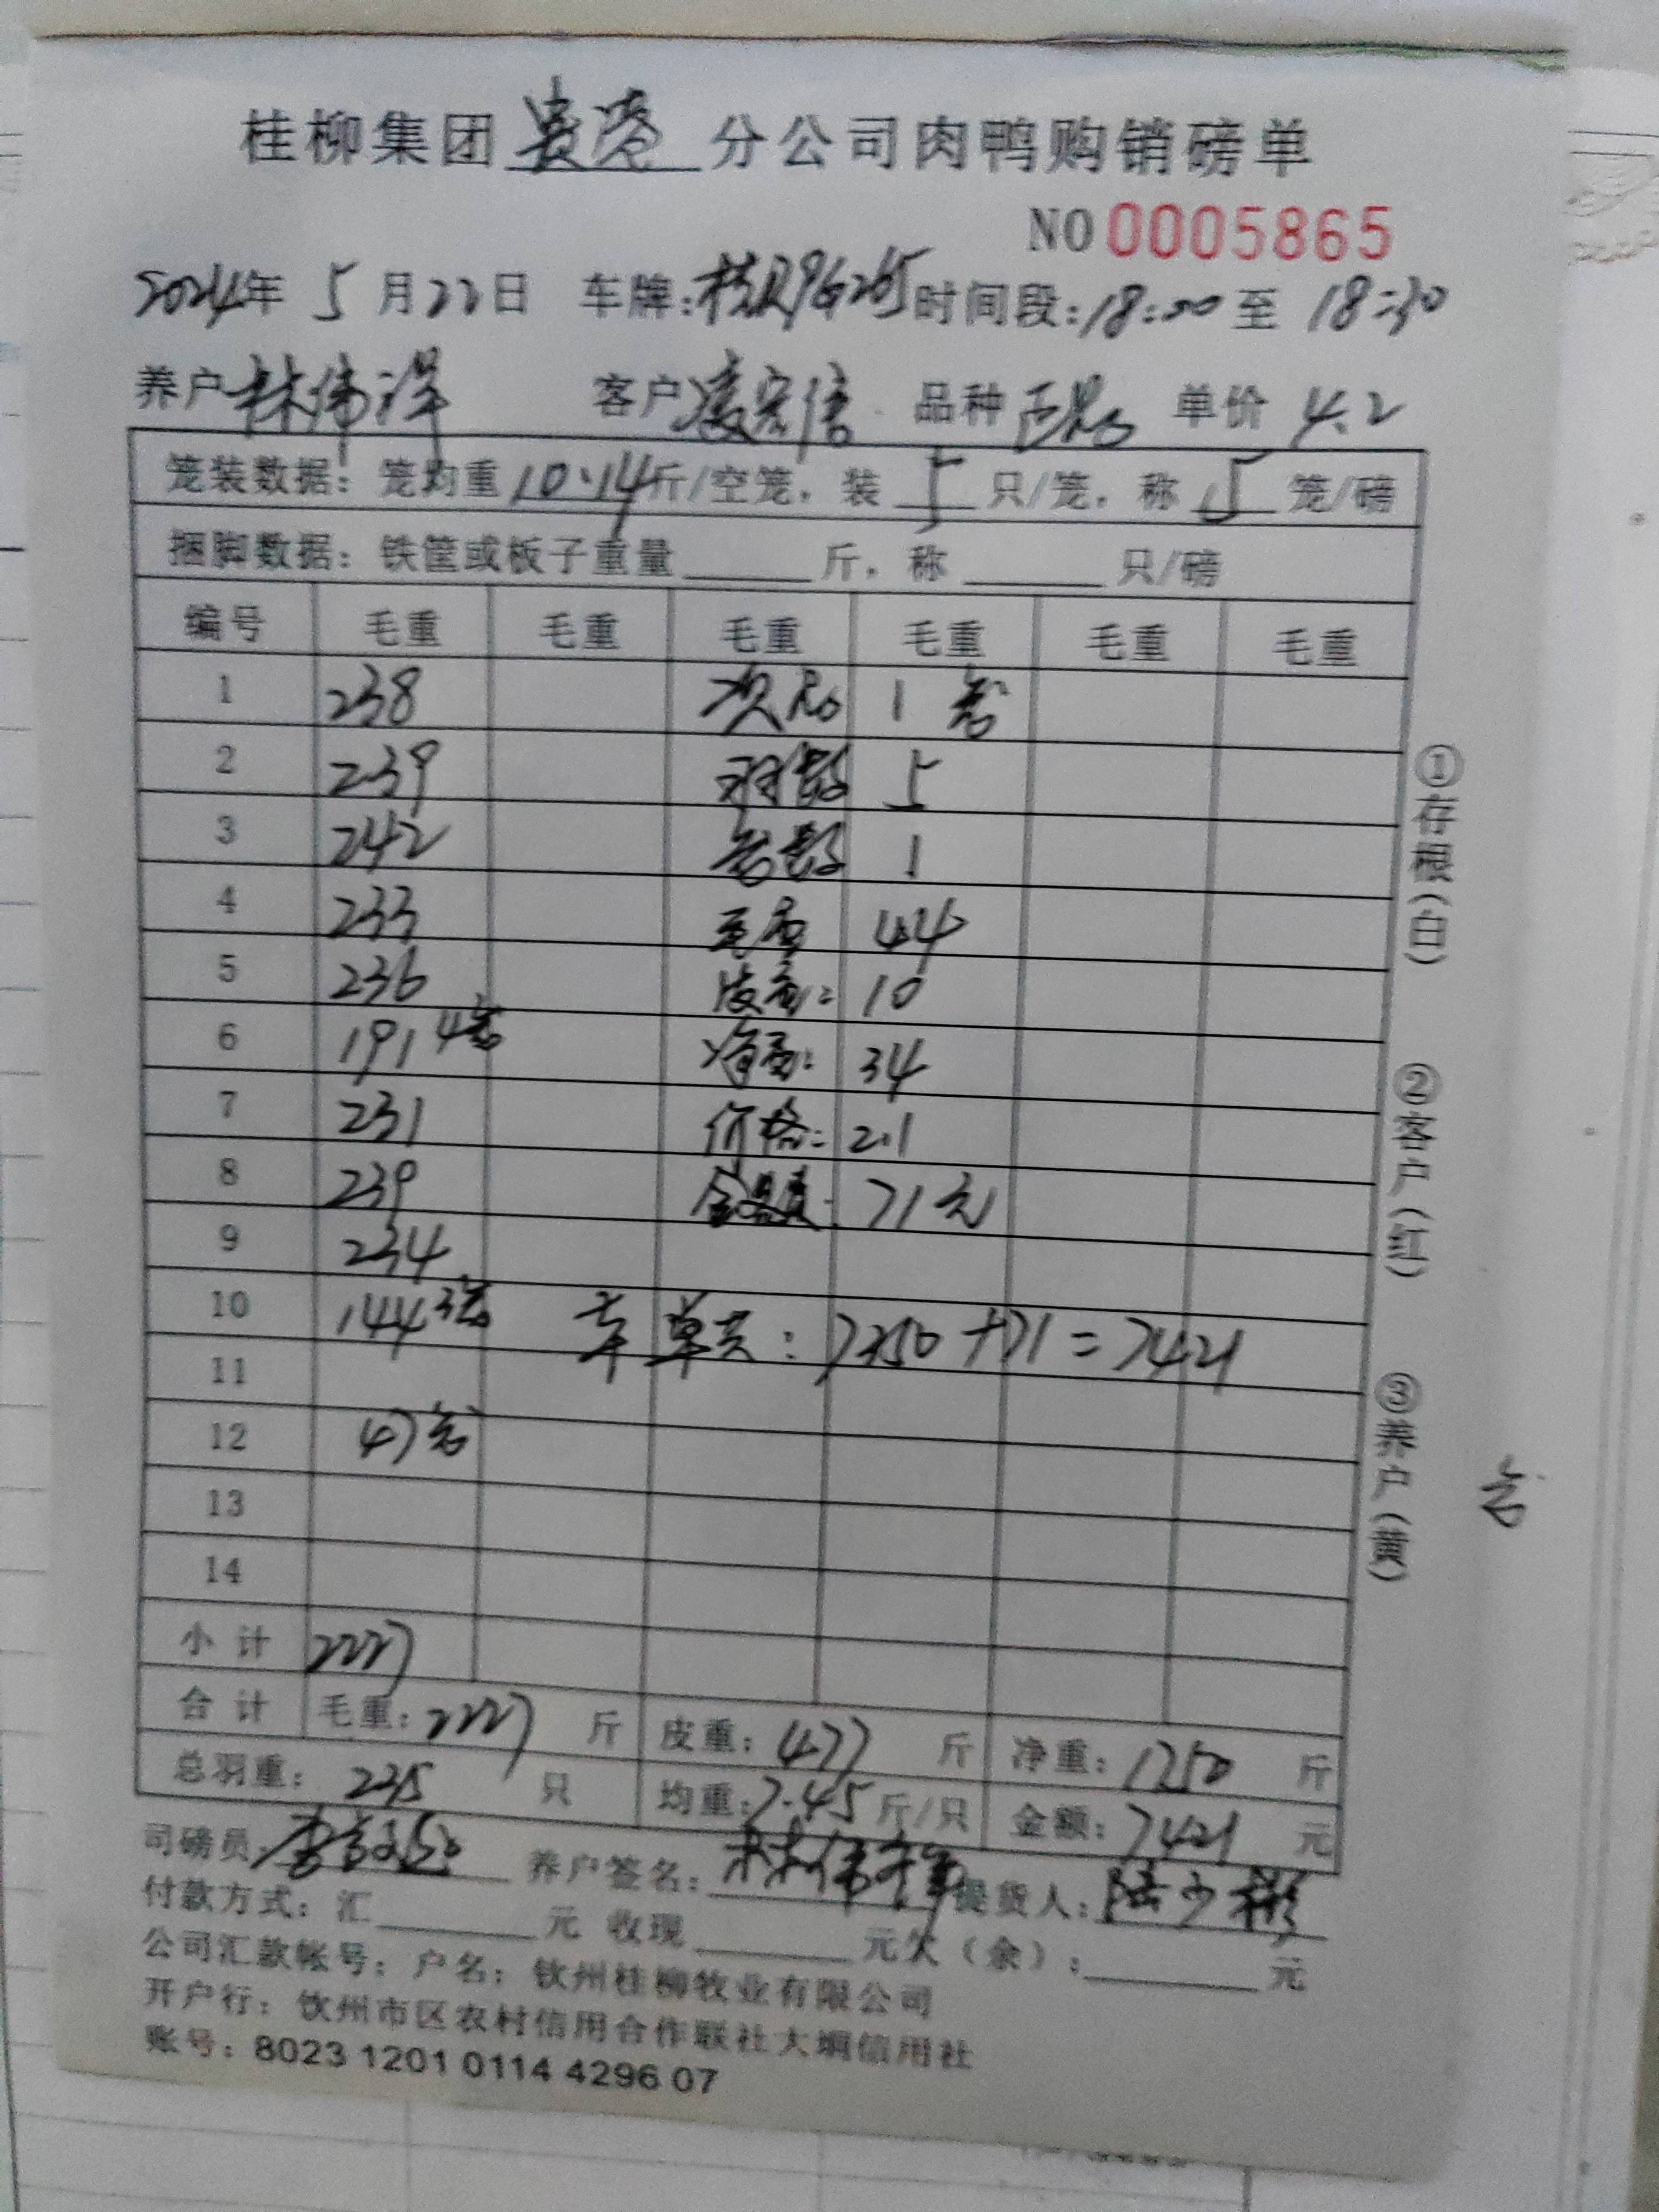 桂柳集团贵港分公司肉鸭购销磅单
NO 0005865
2024年 5 月 22 日 车牌:桂R9G265 时间段:18:00 至 18:30
养户 林伟泽 客户 凌宏信 品种 单价 4.2
笼装数据: 笼均重 10.14 斤/空笼, 装 5 只/笼, 称 5 笼/磅
捆脚数据: 铁筐或板子重量 斤, 称 只/磅
编号 毛重 毛重 毛重 毛重 毛重 毛重
1 238 次品 1 笼
2 239 羽数 5
3 242 笼数 1
4 233 毛重 44
5 236 皮重: 10
6 191 4笼 净重: 34
7 231 价格: 2.1
8 239 金额: 71元
9 234
10 144 3笼 本单共: 7350+71=7421
11
12 47笼
13
14
小 计 2227
合 计 毛重: 2227 斤 皮重: 477 斤 净重: 1750 斤
总羽重: 235 只 均重: 7.45 斤/只 金额: 7421 元
司磅员: 养户签名: 林伟泽 提货人: 陆少彬
付款方式: 汇 元 收现 元欠(余): 元
公司汇款帐号: 户名: 钦州桂柳牧业有限公司
开户行: 钦州市区农村信用合作联社大垌信用社
账号: 8023 1201 0114 4296 07
①存根(白)
②客户(红)
③养户(黄)
笼